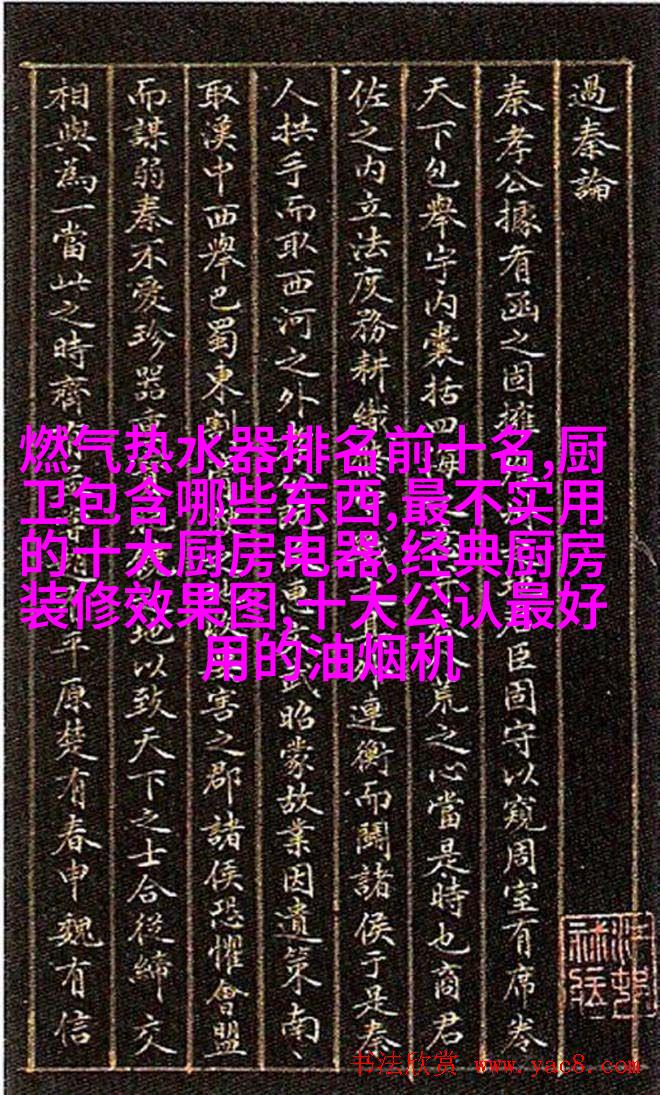 過秦論
秦孝公據肴函之固擁 臣固守以窺周室有席卷
天下包舉宇內囊括四海 荒之心當是時也商君
佐之內立法度務耕織 連衡而鬭諸侯于是秦
人拱手而取西河之外 武昭蒙故業因遺策南
取漢中西舉巴蜀東割 害之郡諸侯恐懼會盟
而謀弱秦不愛珍器重 地以致天下之士合從締交
相與為一當此之時齊 平原楚有春申魏有信
燃气热水器排名前十名,厨
卫包含哪些东西,最不实用
的十大厨房电器,经典厨房
装修效果图,十大公认最好
用的油烟机
书法欣赏 www.yac8.com